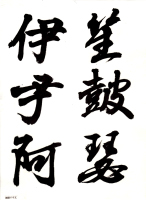 笙鼓瑟
伊尹阿